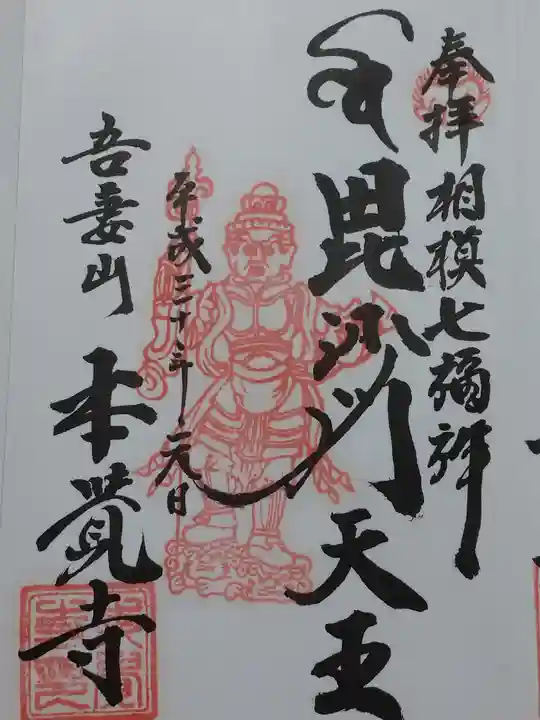 奉拝 相模七福神
毘沙門天王
平成三十年元日
吾妻山 本覺寺